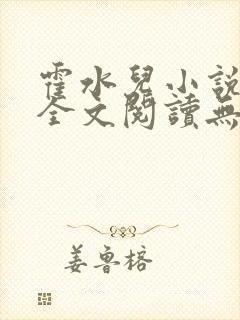 霍水兒小說
全文閱讀無
姜魯榕